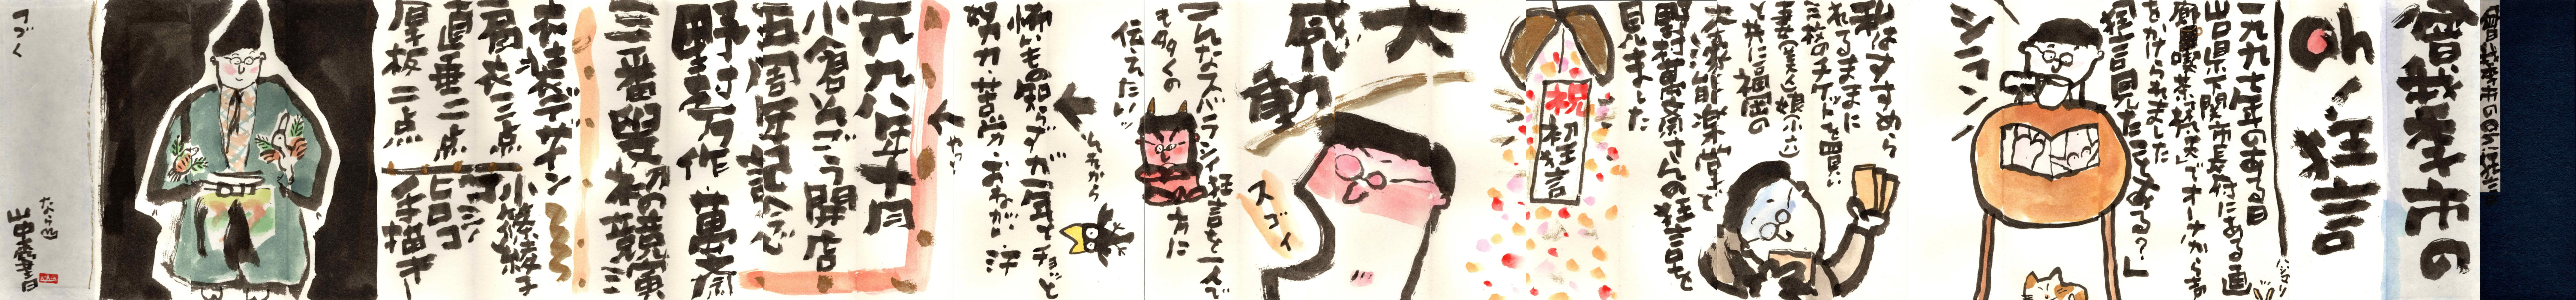 曽我孝市の
Oh!狂言
一九九七年のある日
山口県下関市長府にある画
廊喫茶「
」でオーナーから声
をかけられました
「狂言見たことある?」
シーン
私はすすめら
れてるままに
三枚のチケットを買い
と共に福岡の
大濠能楽堂で
野村萬斎さんの狂言を
見ました
祝
初狂言
大
感
動
スゴイ
こんなスバラシイ狂言を一人で
も多くの
方に
伝えたい
それから
怖いもの知らずが一年チョット
努力・苦労・おねがい・汗
やっ
一九九八年十月
小倉そごう開店
五周年記念
野村万作・萬斎
三番叟初の競演
衣装デザイン
小篠綾子
コシノ
ヒロコ
手描き
直垂二点
厚板二点
つづく